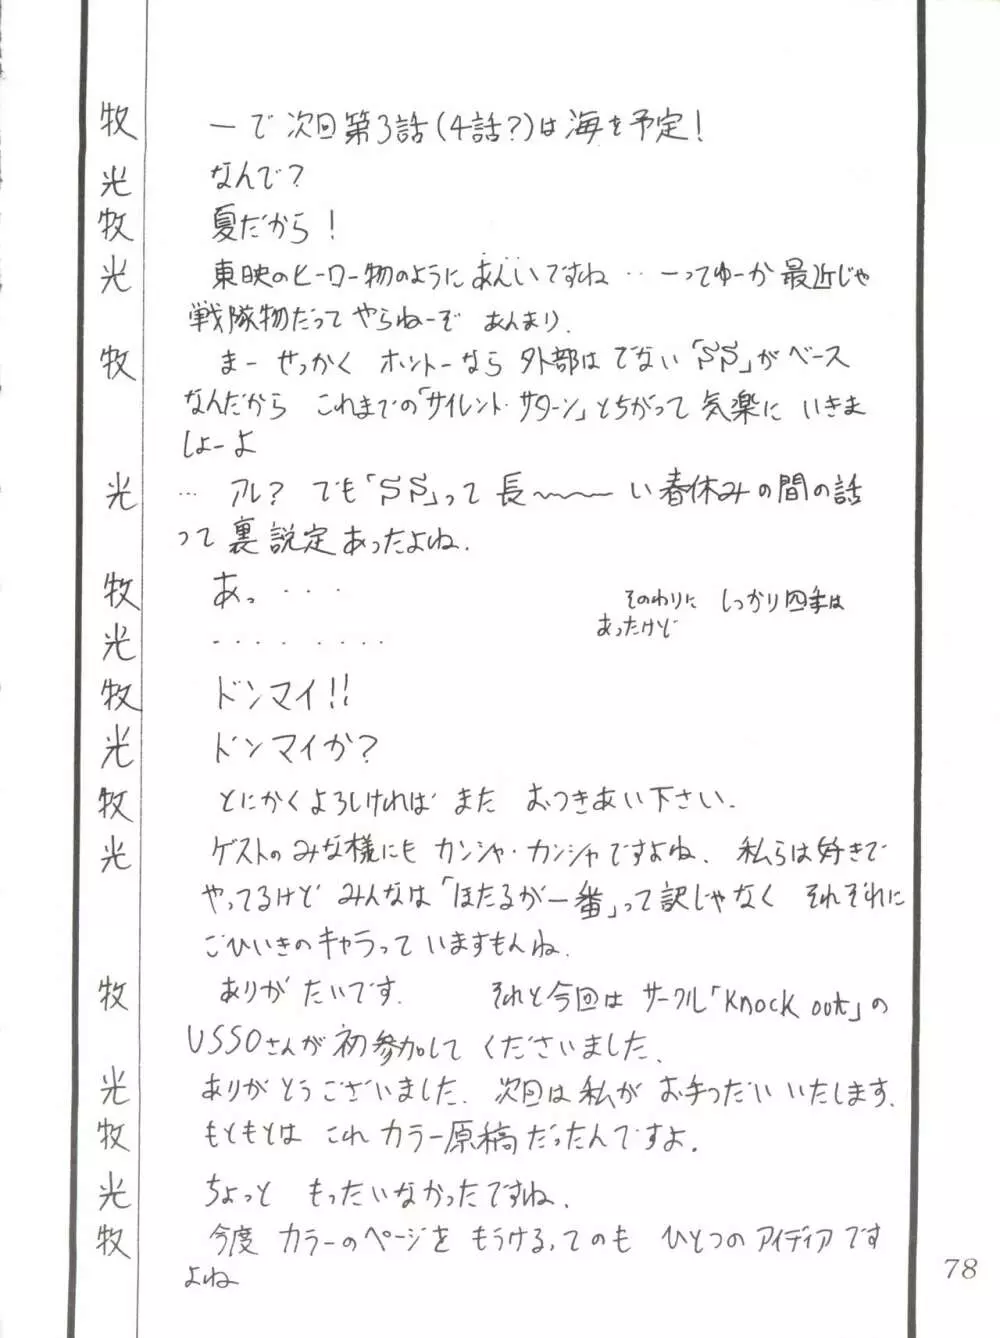 牧 ーで 次回第3話(4話?)は海を予定!
光 なんで?
牧 夏だから!
光 東映のヒーロー物のように あんいですね… ーってゆーか 最近じゃ
戦隊物だって やらねーぞ あんまり.
牧 まー せっかく ホントーなら 外部は でない「SS」が ベース
なんだから これまでの「サイレント・サターン」とちがって 気楽に いきま
しょーよ
光 … アレ? でも「SS」って 長〜〜〜い 春休みの間の話
って 裏設定 あったよね.
牧 あっ・・・
そのわりに しっかり四季は
あったけど
光 ・・・・ ・・・・
牧 ドンマイ!!
光 ドンマイか?
牧 とにかく よろしければ また おつきあい下さい.
光 ゲストの みな様にも カンシャ・カンシャですよね. 私らは好きで
やってるけど みんなは「ほたるが一番」って訳じゃなく それぞれに
ごひいきのキャラって いますもんね.
牧 ありが たいです. それと今回は サークル「Knock out」の
USSOさんが 初参加して くださいました.
光 ありがとうございました. 次回は私が お手つだい いたします.
牧 もともとは これ カラー原稿だったんですよ.
光 ちょっと もったいなかったですね.
牧 今度 カラーのページを もうける,てのも ひとつの アイディアです
よね
78